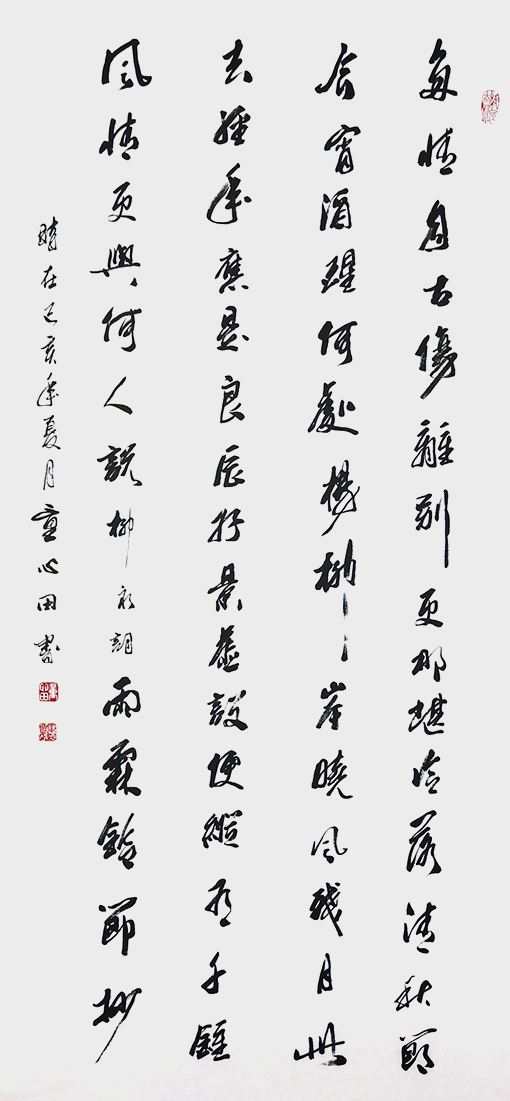 多情自古傷離別更那堪冷落清秋節
今宵酒醒何處楊柳岸曉風殘月此
去經年應是良辰好景虛設便縱有千鍾
風情更與何人說柳永詞雨霖鈴節抄
時在己亥年夏月童心田書